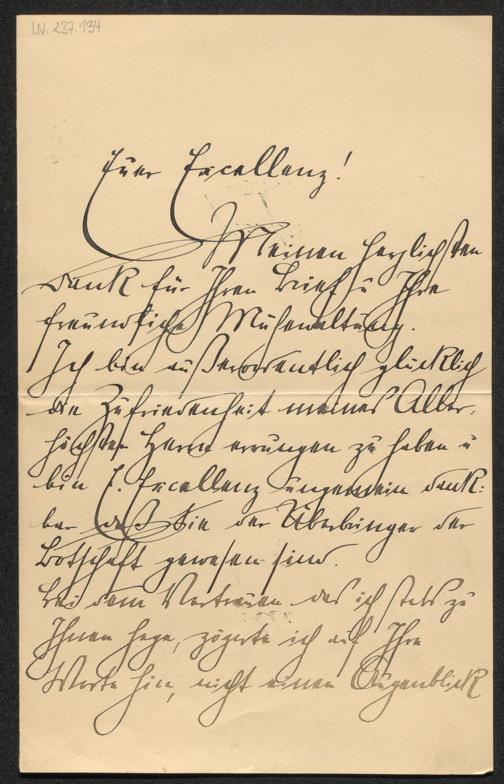 I.N. 237.134
Euer Excellenz!
Meinen herzlichsten
Dank für Ihren Brief u Ihre
freundliche Mühewaltung.
Ich bin außerordentlich glücklich
die Zufriedenheit meines Aller-
höchsten Herrn errungen zu haben u
bin E. Excellenz ungemein dank-
bar daß Sie der Überbringer der
Botschaft gewesen sind.
Bei dem Vertrauen das ich stets zu
Ihnen hege, zögerte ich auf Ihre
Worte hin, nicht einen Augenblick